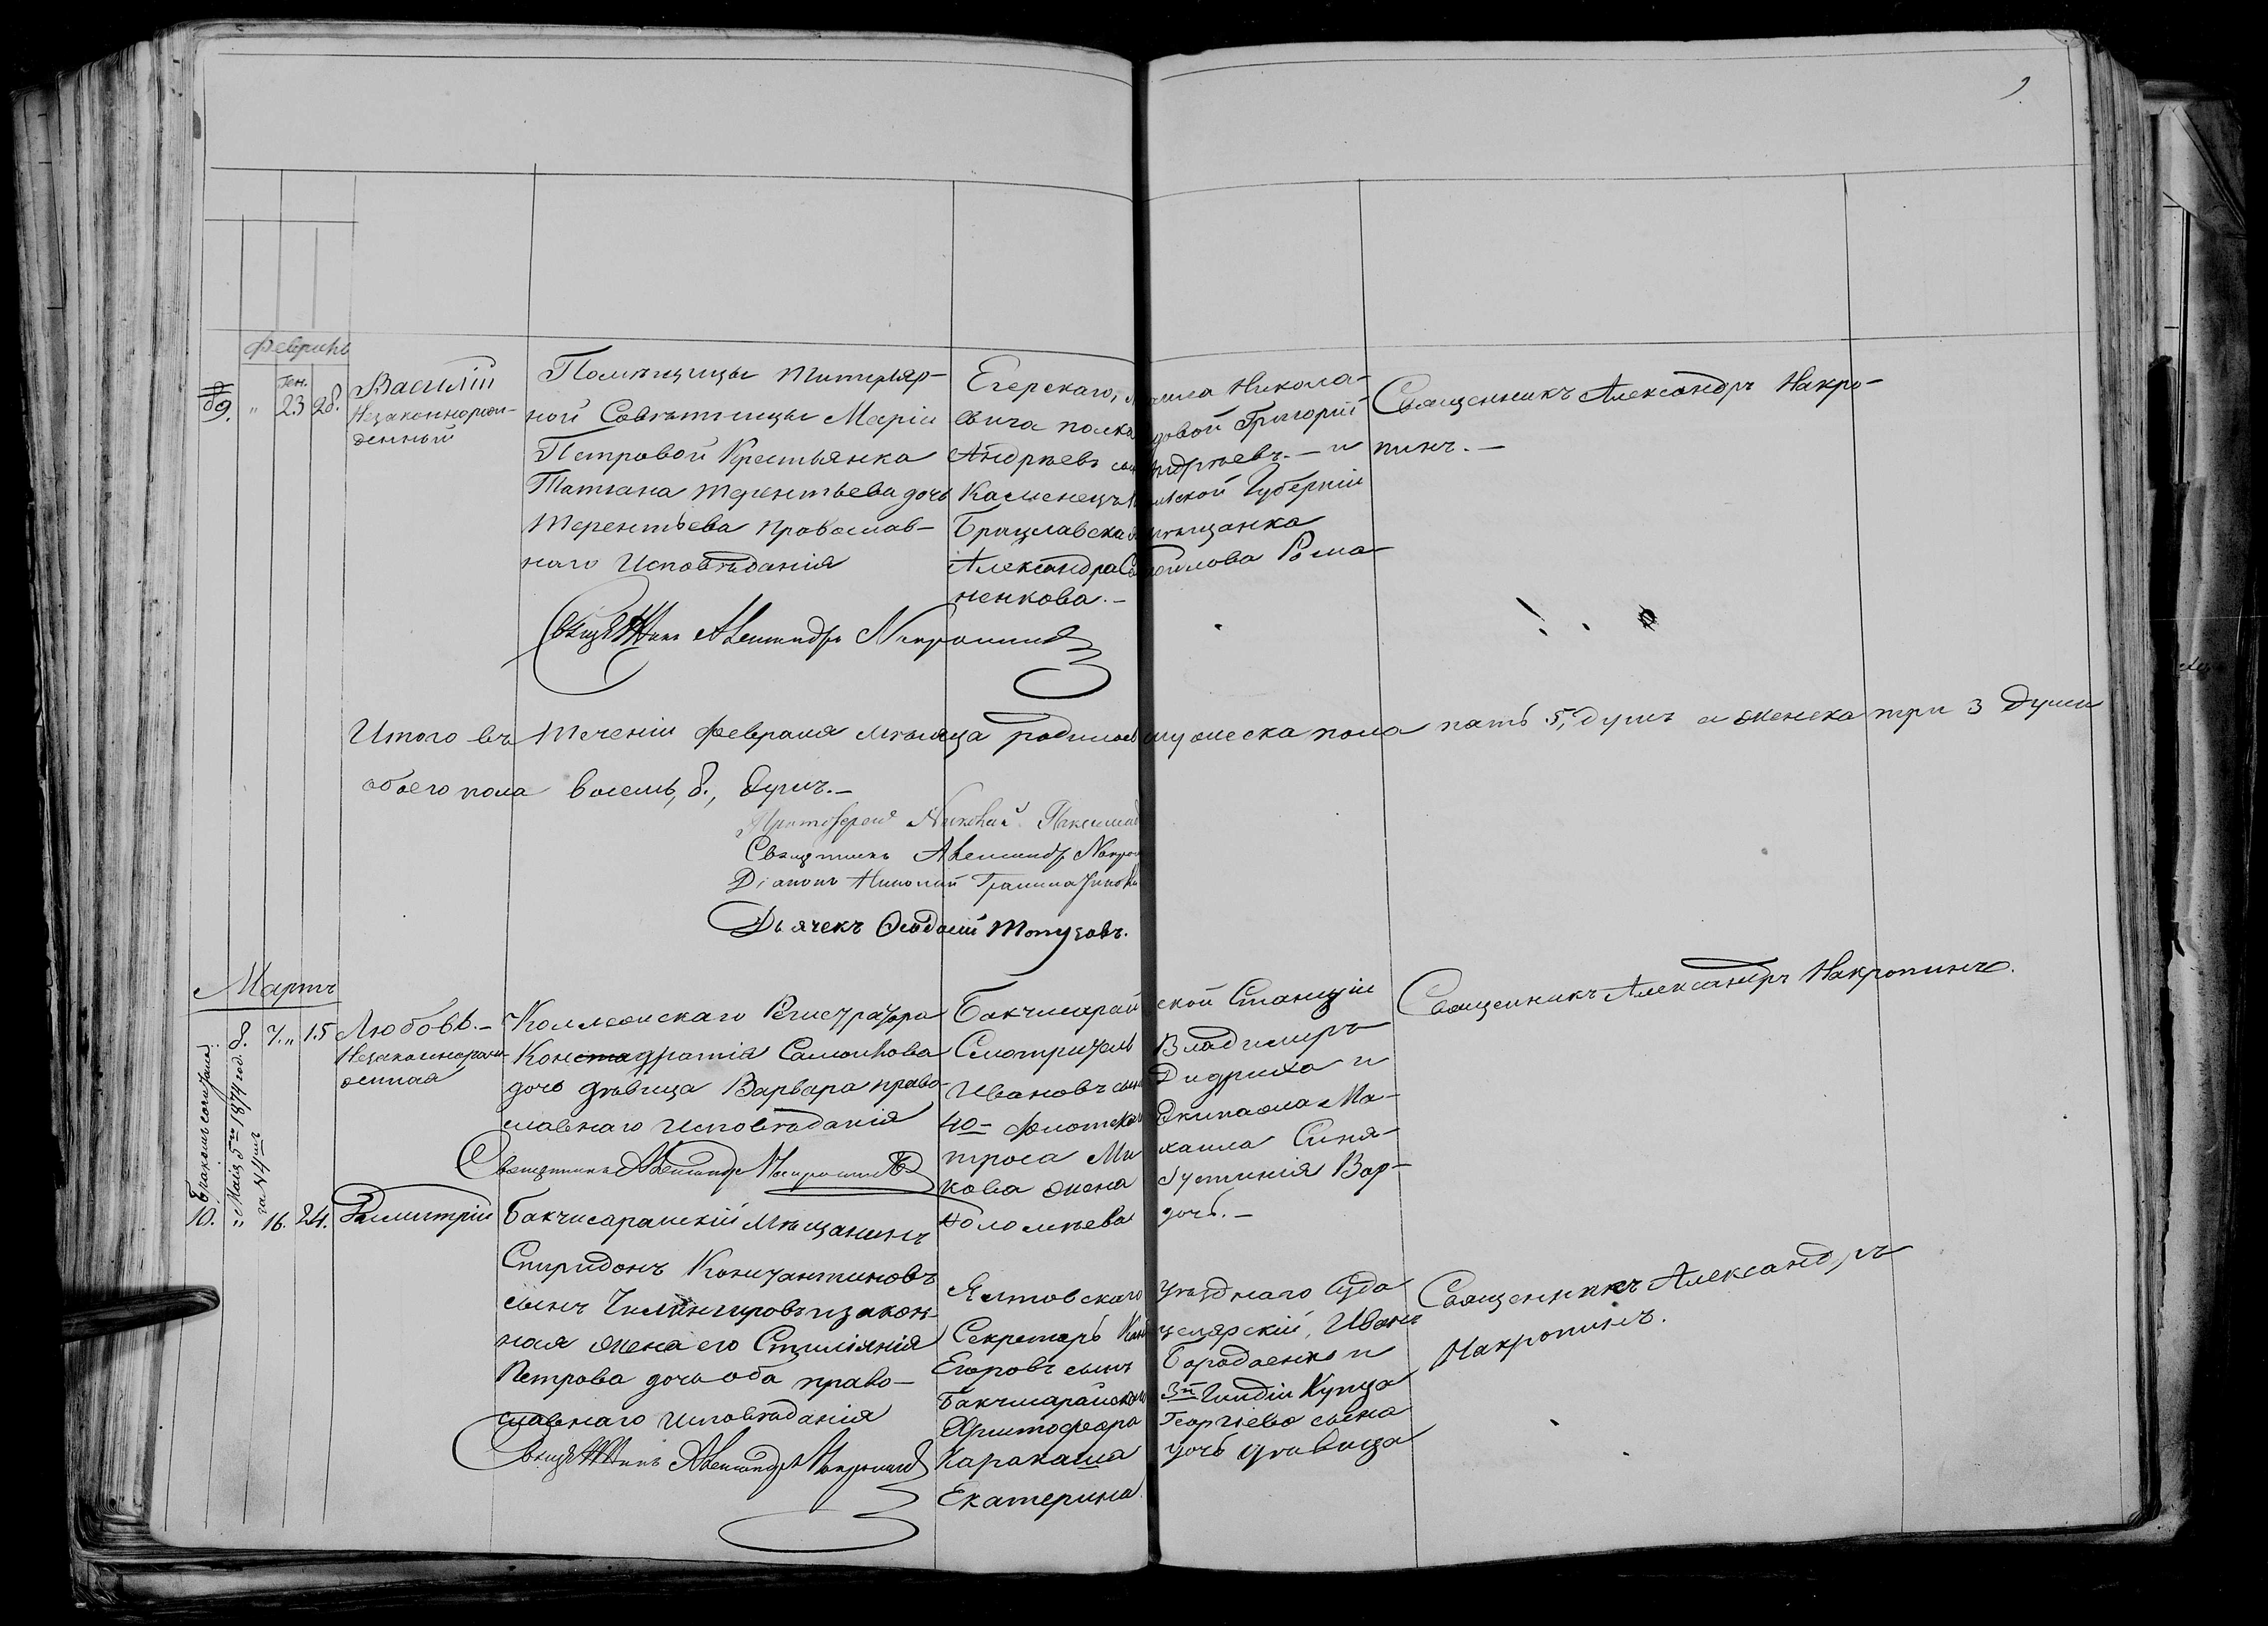 9
Февраль
9. " Ген. 23 28.
Василій
Незаконнорож-
денный
Помѣщицы Титуляр-
ной Совѣтницы Маріи
Петровой Крестьянка
Татіана Терентьева дочь
Терентьева Православ-
наго Исповѣданія
Егерскаго, Михаила Никола-
евича полка рядовой Григорій
Андрѣевъ сынъ Андрѣевъ. - и
Каменецъ Подольской Губерніи
Брацлавская мѣщанка
Александра Самойлова Рома-
ненкова. -
Священникъ Александръ Накро-
пинъ. -
Священникъ Александръ Накропинъ
Итого въ теченіи февраля мѣсяца родилось мужеска пола пять 5, душъ а женска три 3 души
обоего пола восемь, 8., душъ. -
Протоіерей
Священникъ Александръ Накроп
Діаконъ Николай
Дьячекъ Ѳеодосій Топузовъ.
Мартъ
8. 7. " 15
Бракомъ сочетана
Маія 5го 1874 год.
за № 4мъ
Любовь. -
Незаконнорож-
денная
Коллежскаго Регистратора
Кондратія Самойлова
дочь дѣвица Варвара право-
славнаго исповѣданія
Священникъ Александръ Накропинъ
Бакчисарайской Станціи
Смотритель Владимиръ
Ивановъ сынъ Дидриха и
40- флотскаго Экипажа Ма-
троса Михаила Синя-
кова жена Іустинія Вар-
ѳоломѣева дочь. -
Священникъ Александръ Накропинъ.
10. " 16. 24.
Димитрій
Бакчисарайскій Мѣщанинъ
Спиридонъ Константиновъ
сынъ Чилингировъ и закон-
ная жена его Стиліянія
Петрова дочь оба право-
славнаго исповѣданія
Священникъ Александръ Накропинъ
Ялтовскаго Уѣзднаго Суда
Секретарь Канцелярскій, Иванъ
Егоровъ сынъ Бородаенко и
Бакчисарайскаго 3й Гильдіи Купца
Христофора Георгіева сына
Каракаша дочь дѣвица
Екатерина.
Священникъ Александръ
Накропинъ.